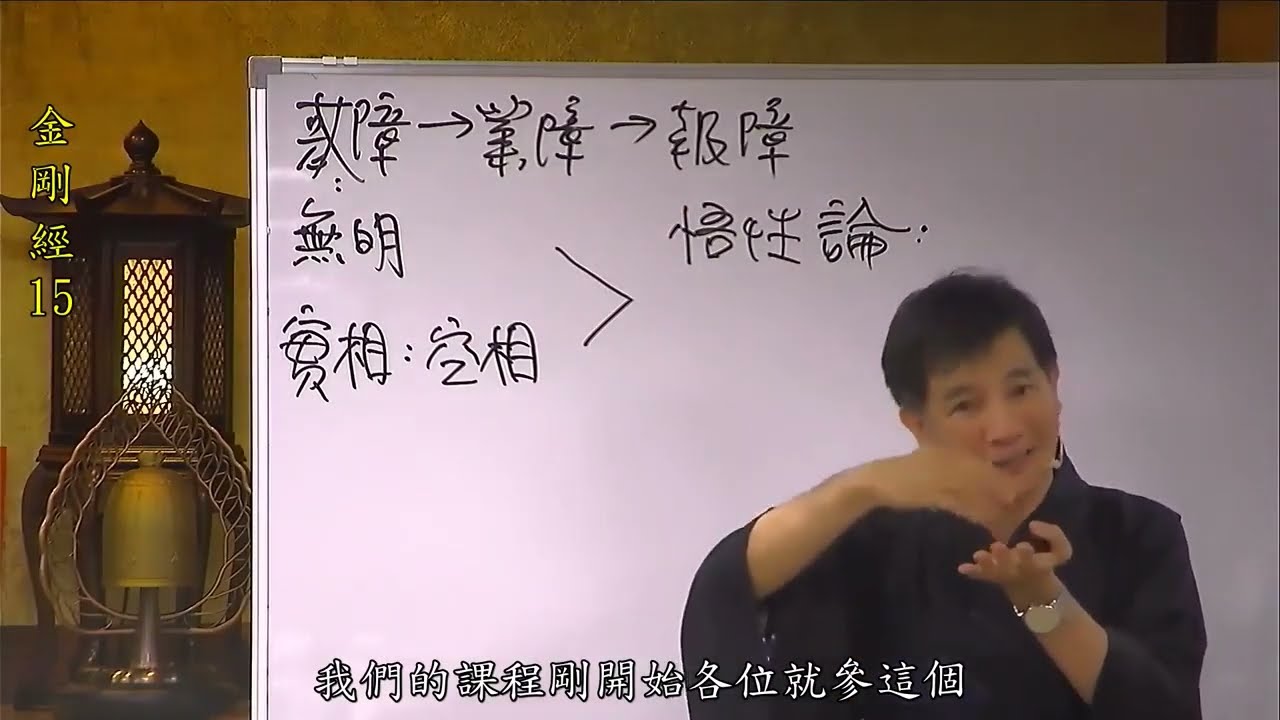 金剛經15
惑障→業障→報障
無明
悟性論:
實相:空相
我們的課程剛開始各位就參這個